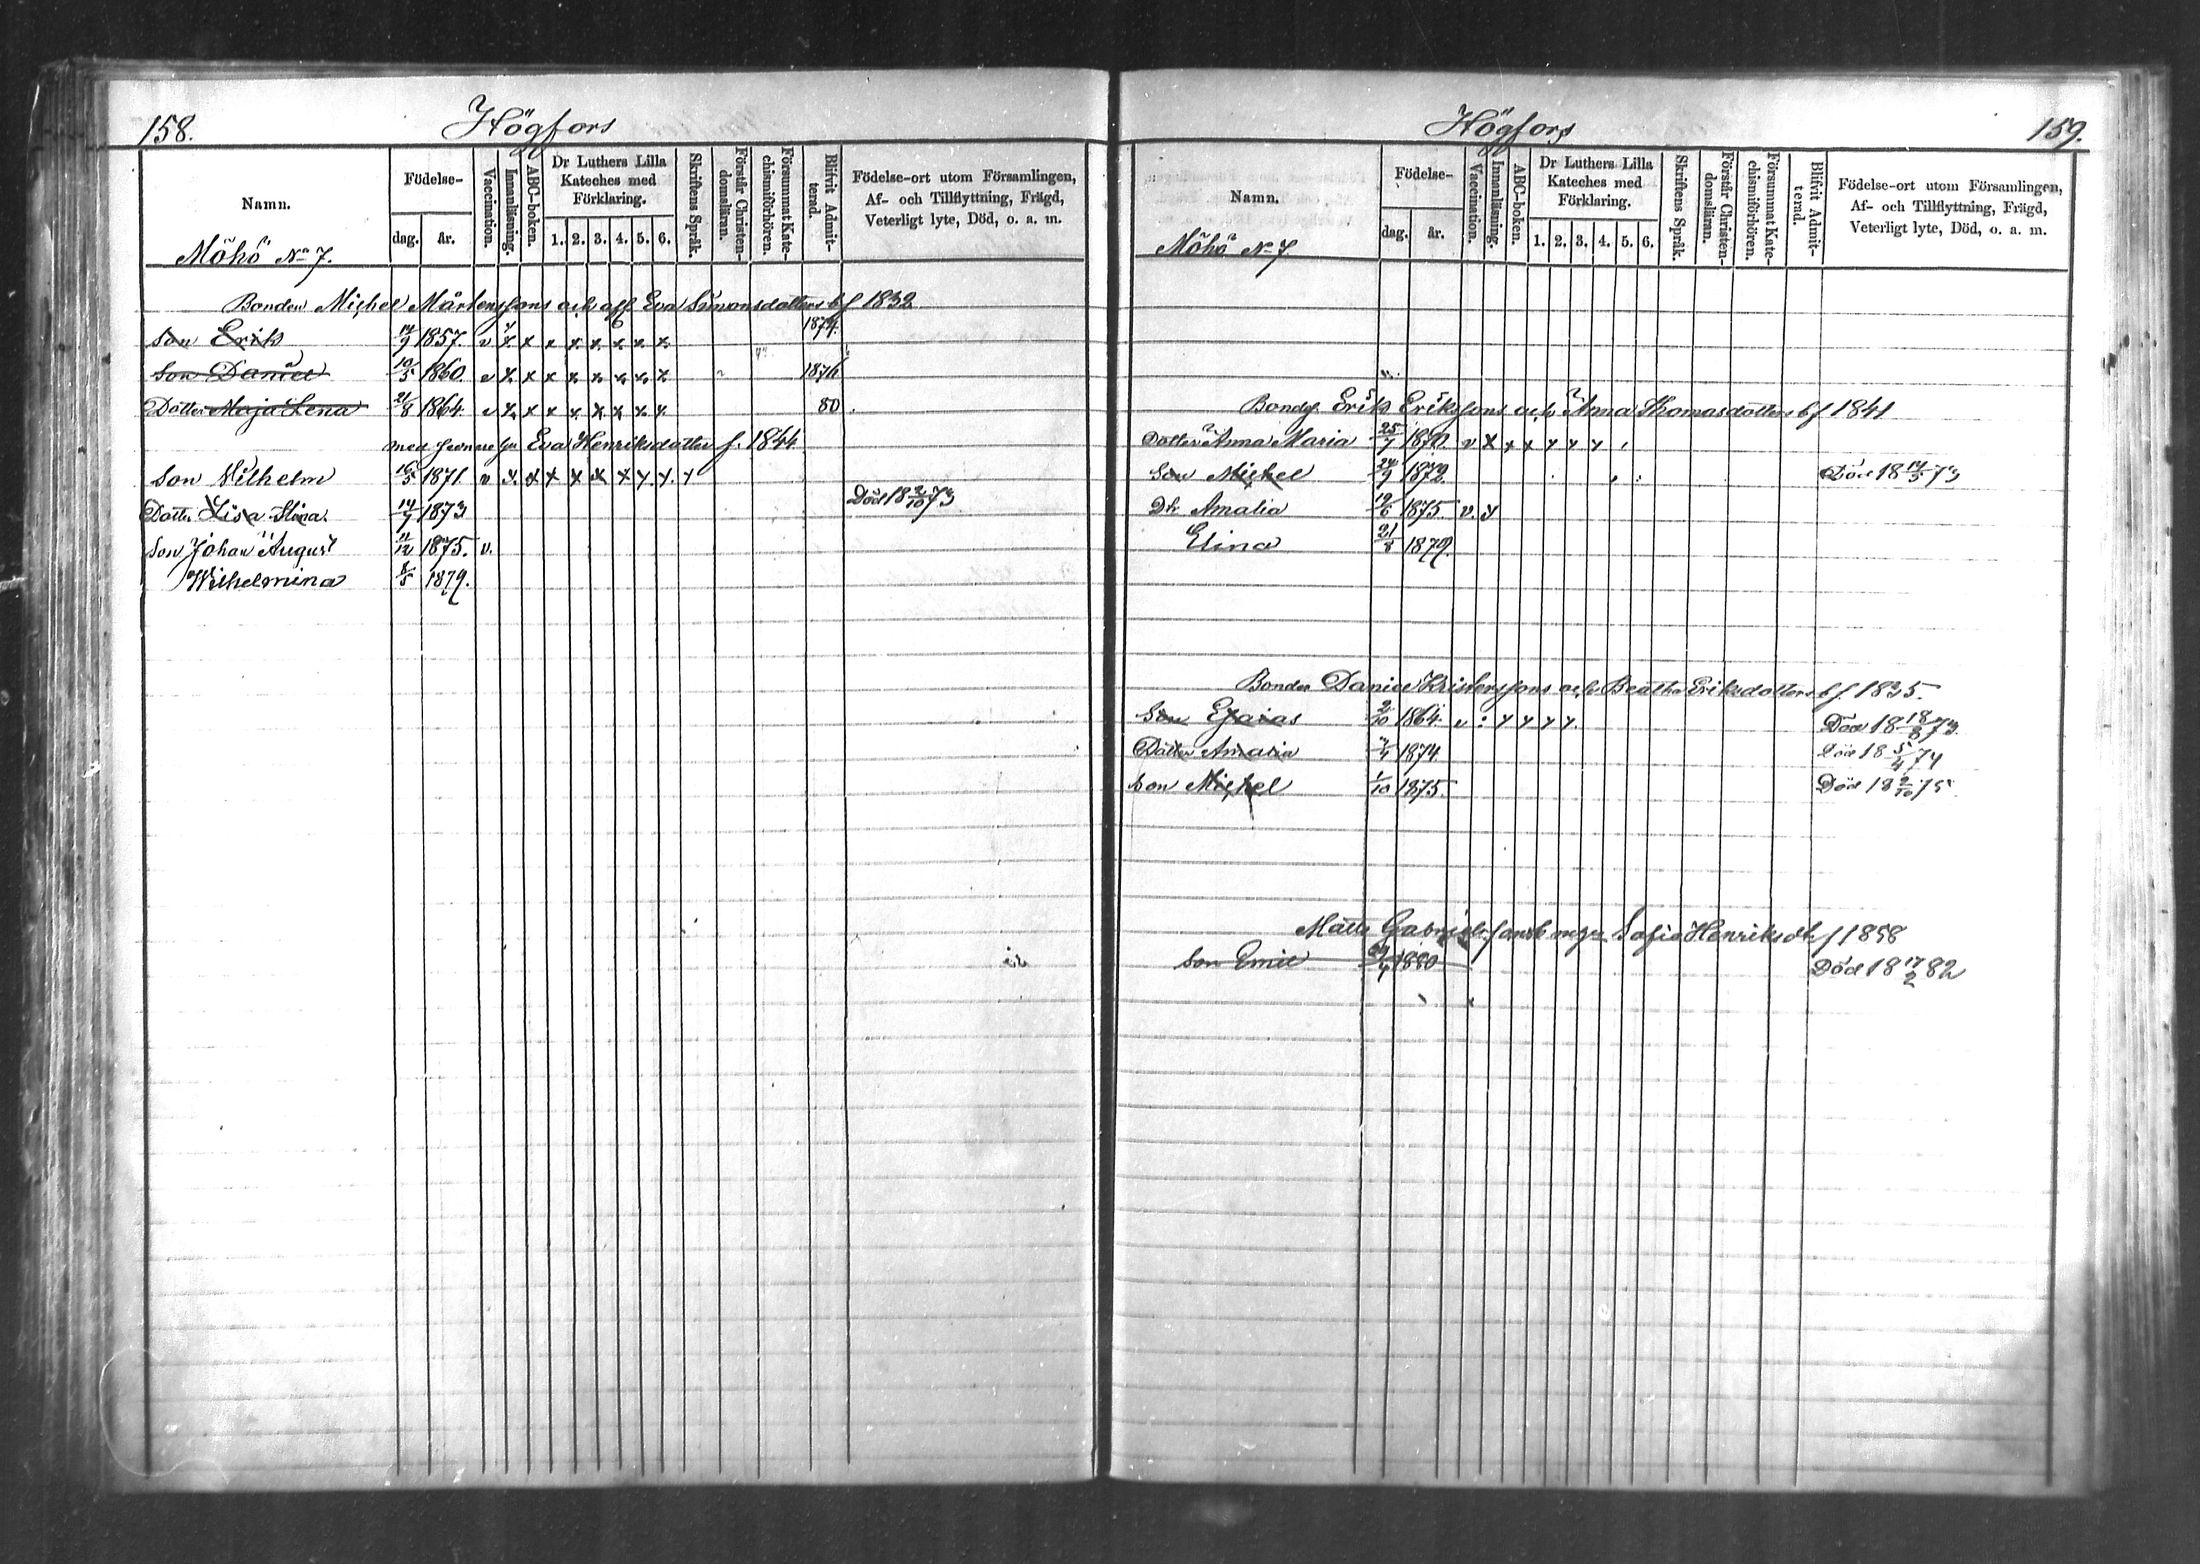 158.
Högfors
Namn.
Födelse-
dag.
år.
Vaccination.
Innanläsning.
ABC-boken.
Dr Luthers Lilla
Kateches med
Förklaring.
1. 2. 3. 4. 5. 6.
Skriftens Språk.
Förstår Christen-
domsläran.
Försummat Kate-
chismiförhören.
Blifvit Admit-
terad.
Födelse-ort utom Församlingen,
Af- och Tillflyttning, Frägd,
Veterligt lyte, Död, o. a. m.
Möhö No 7.
Bonden Michel Mårtenssons och afl. Eva Simonsdotters bf 1832
Son Erik 14/9 1857. v x x x x x x x x 1874.
Son Daniel 19/5 1860. v x x x x x x x x 1876
Dotter Maja Lena 21/8 1864 v x x x x x x x x 80.
med Eva Henriksdotter f. 1844
Son Wilhelm 16/5 1871 v x x x x x x x x x
Dotter Lisa Stina. 14/7 1873 Död 18 2/10 73
Son Johan August 11/12 1875. v.
Wilhelmina 8/5 1879.
159.
Högfors
Namn.
Födelse-
dag.
år.
Vaccination.
Innanläsning.
ABC-boken.
Dr Luthers Lilla
Kateches med
Förklaring.
1. 2. 3. 4. 5. 6.
Skriftens Språk.
Förstår Christen-
domsläran.
Försummat Kate-
chismiförhören.
Blifvit Admit-
terad.
Födelse-ort utom Församlingen,
Af- och Tillflyttning, Frägd,
Veterligt lyte, Död, o. a. m.
Möhö No 7.
Bonden Erik Erikssons och Anna Thomasdotters bf 1841
Dotter Anna Maria 25/7 1870. v x x x x x x
Son Michel 24/9 1872. Död 18 14/5 73
Dr Amalia 19/6 1875. v. x
Elina 21/8 1879.
Bonden Daniel Kristerssons och Beatha Eriksdotters bf 1835.
Son Esaias 2/10 1864. v : x x x x. Död 18 18/8 73.
Dotter Amalia 3/4 1874 Död 18 5/4 74
Son Michel 1/10 1875. Död 18 2/10 75.
Matts Gabrielssons Sofia Henriksdr f 1858
Son Emil 1880 Död 18 17/2 82